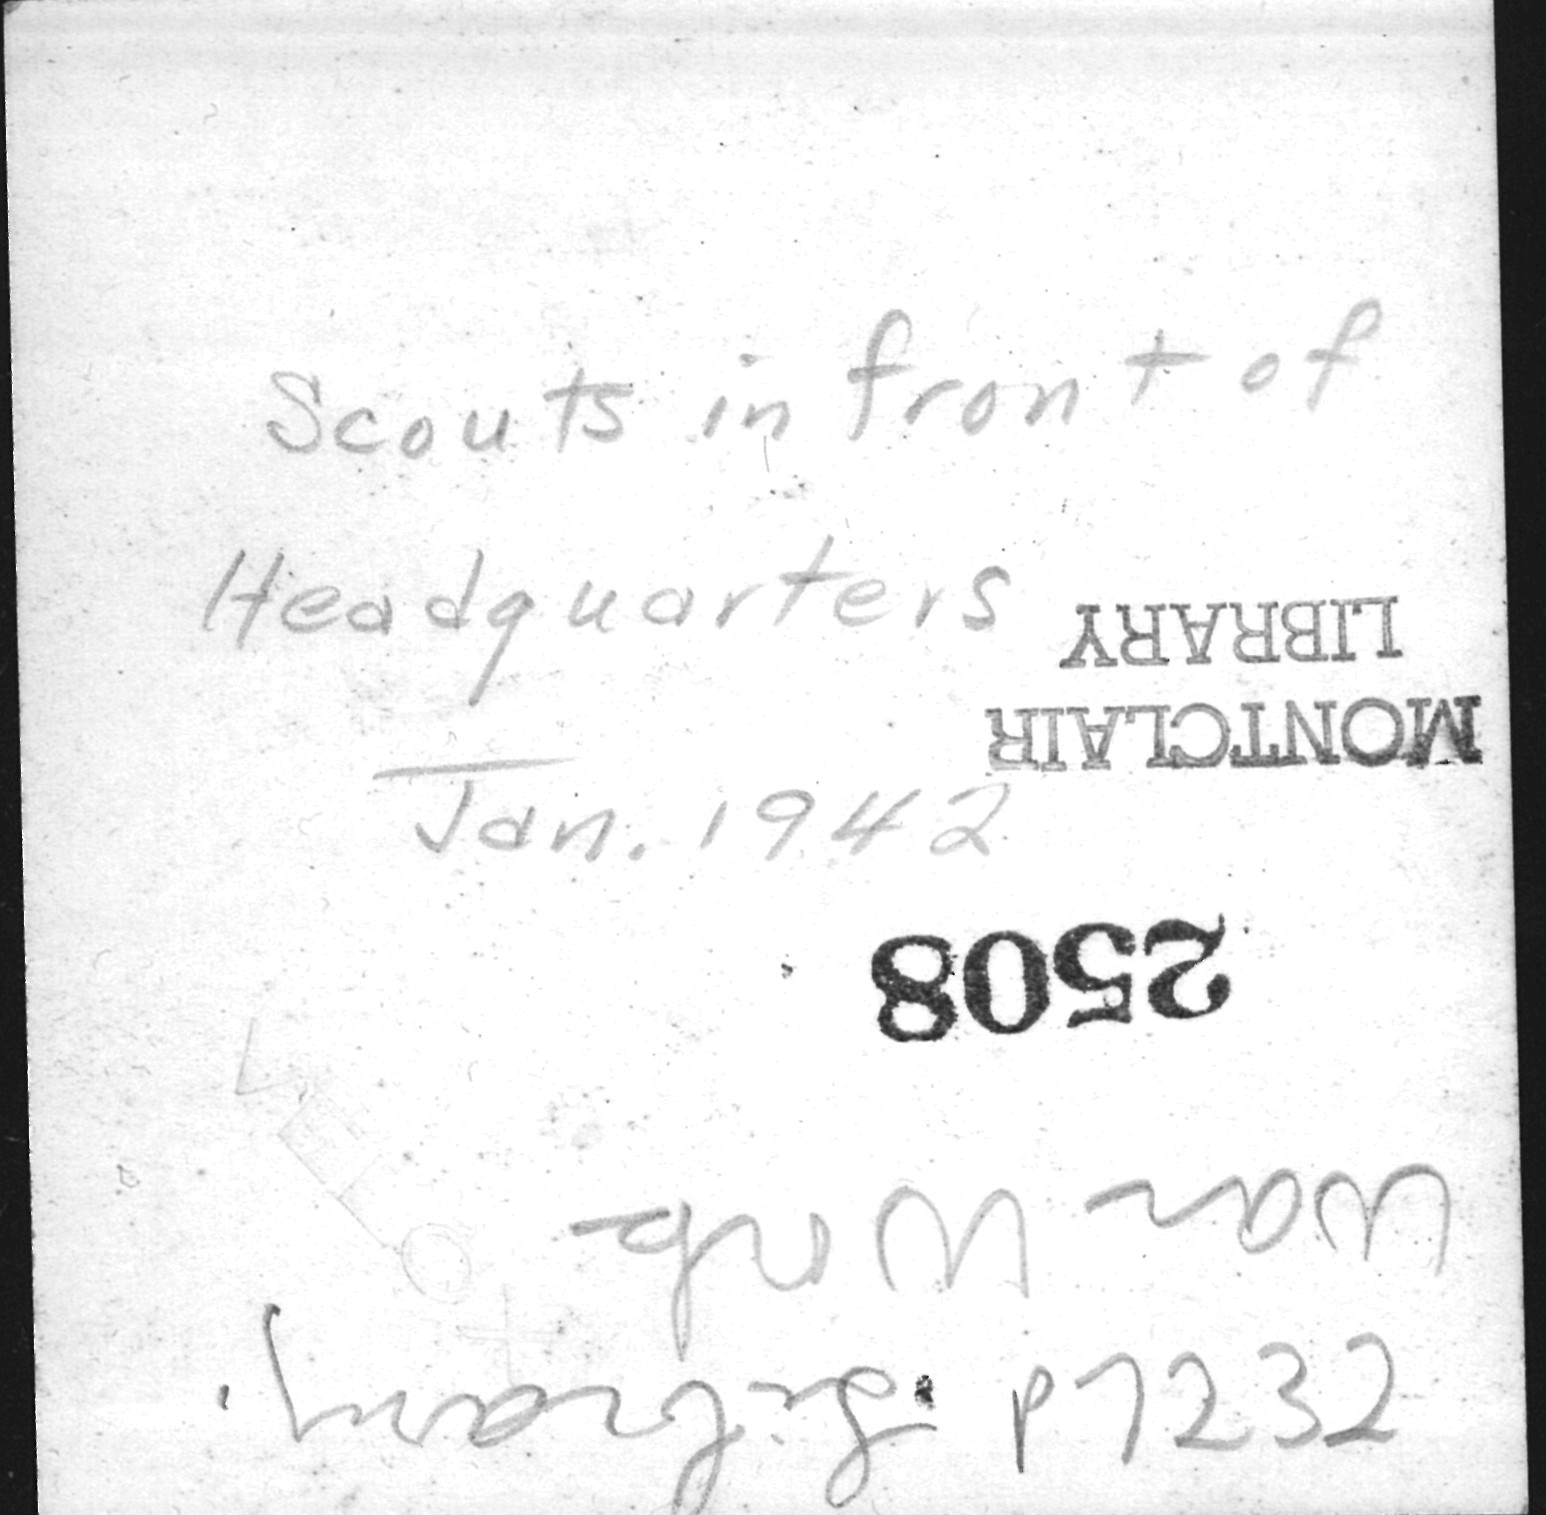 Scouts in front of
Headquarters
Jan. 1942
P7232
Library.
War Work
2508
MONTCLAIR
LIBRARY